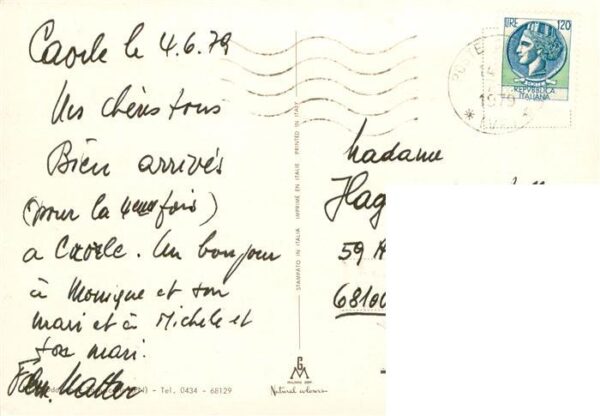 Caorle le 4.6.79
Mes chéris tous
Bien arrivés
(pour la 4eme fois)
a Caorle. Un bonjour
à Monique et son
mari et à Michele et
son mari.
Fam. Matter
- Tel. 0434 - 68129
STAMPATO IN ITALIA IMPRIMÉ EN ITALIE PRINTED IN ITALY
Natural colours
LIRE 120
REPUBBLICA
ITALIANA
POSTE
1979
Madame
Hag
59
6810